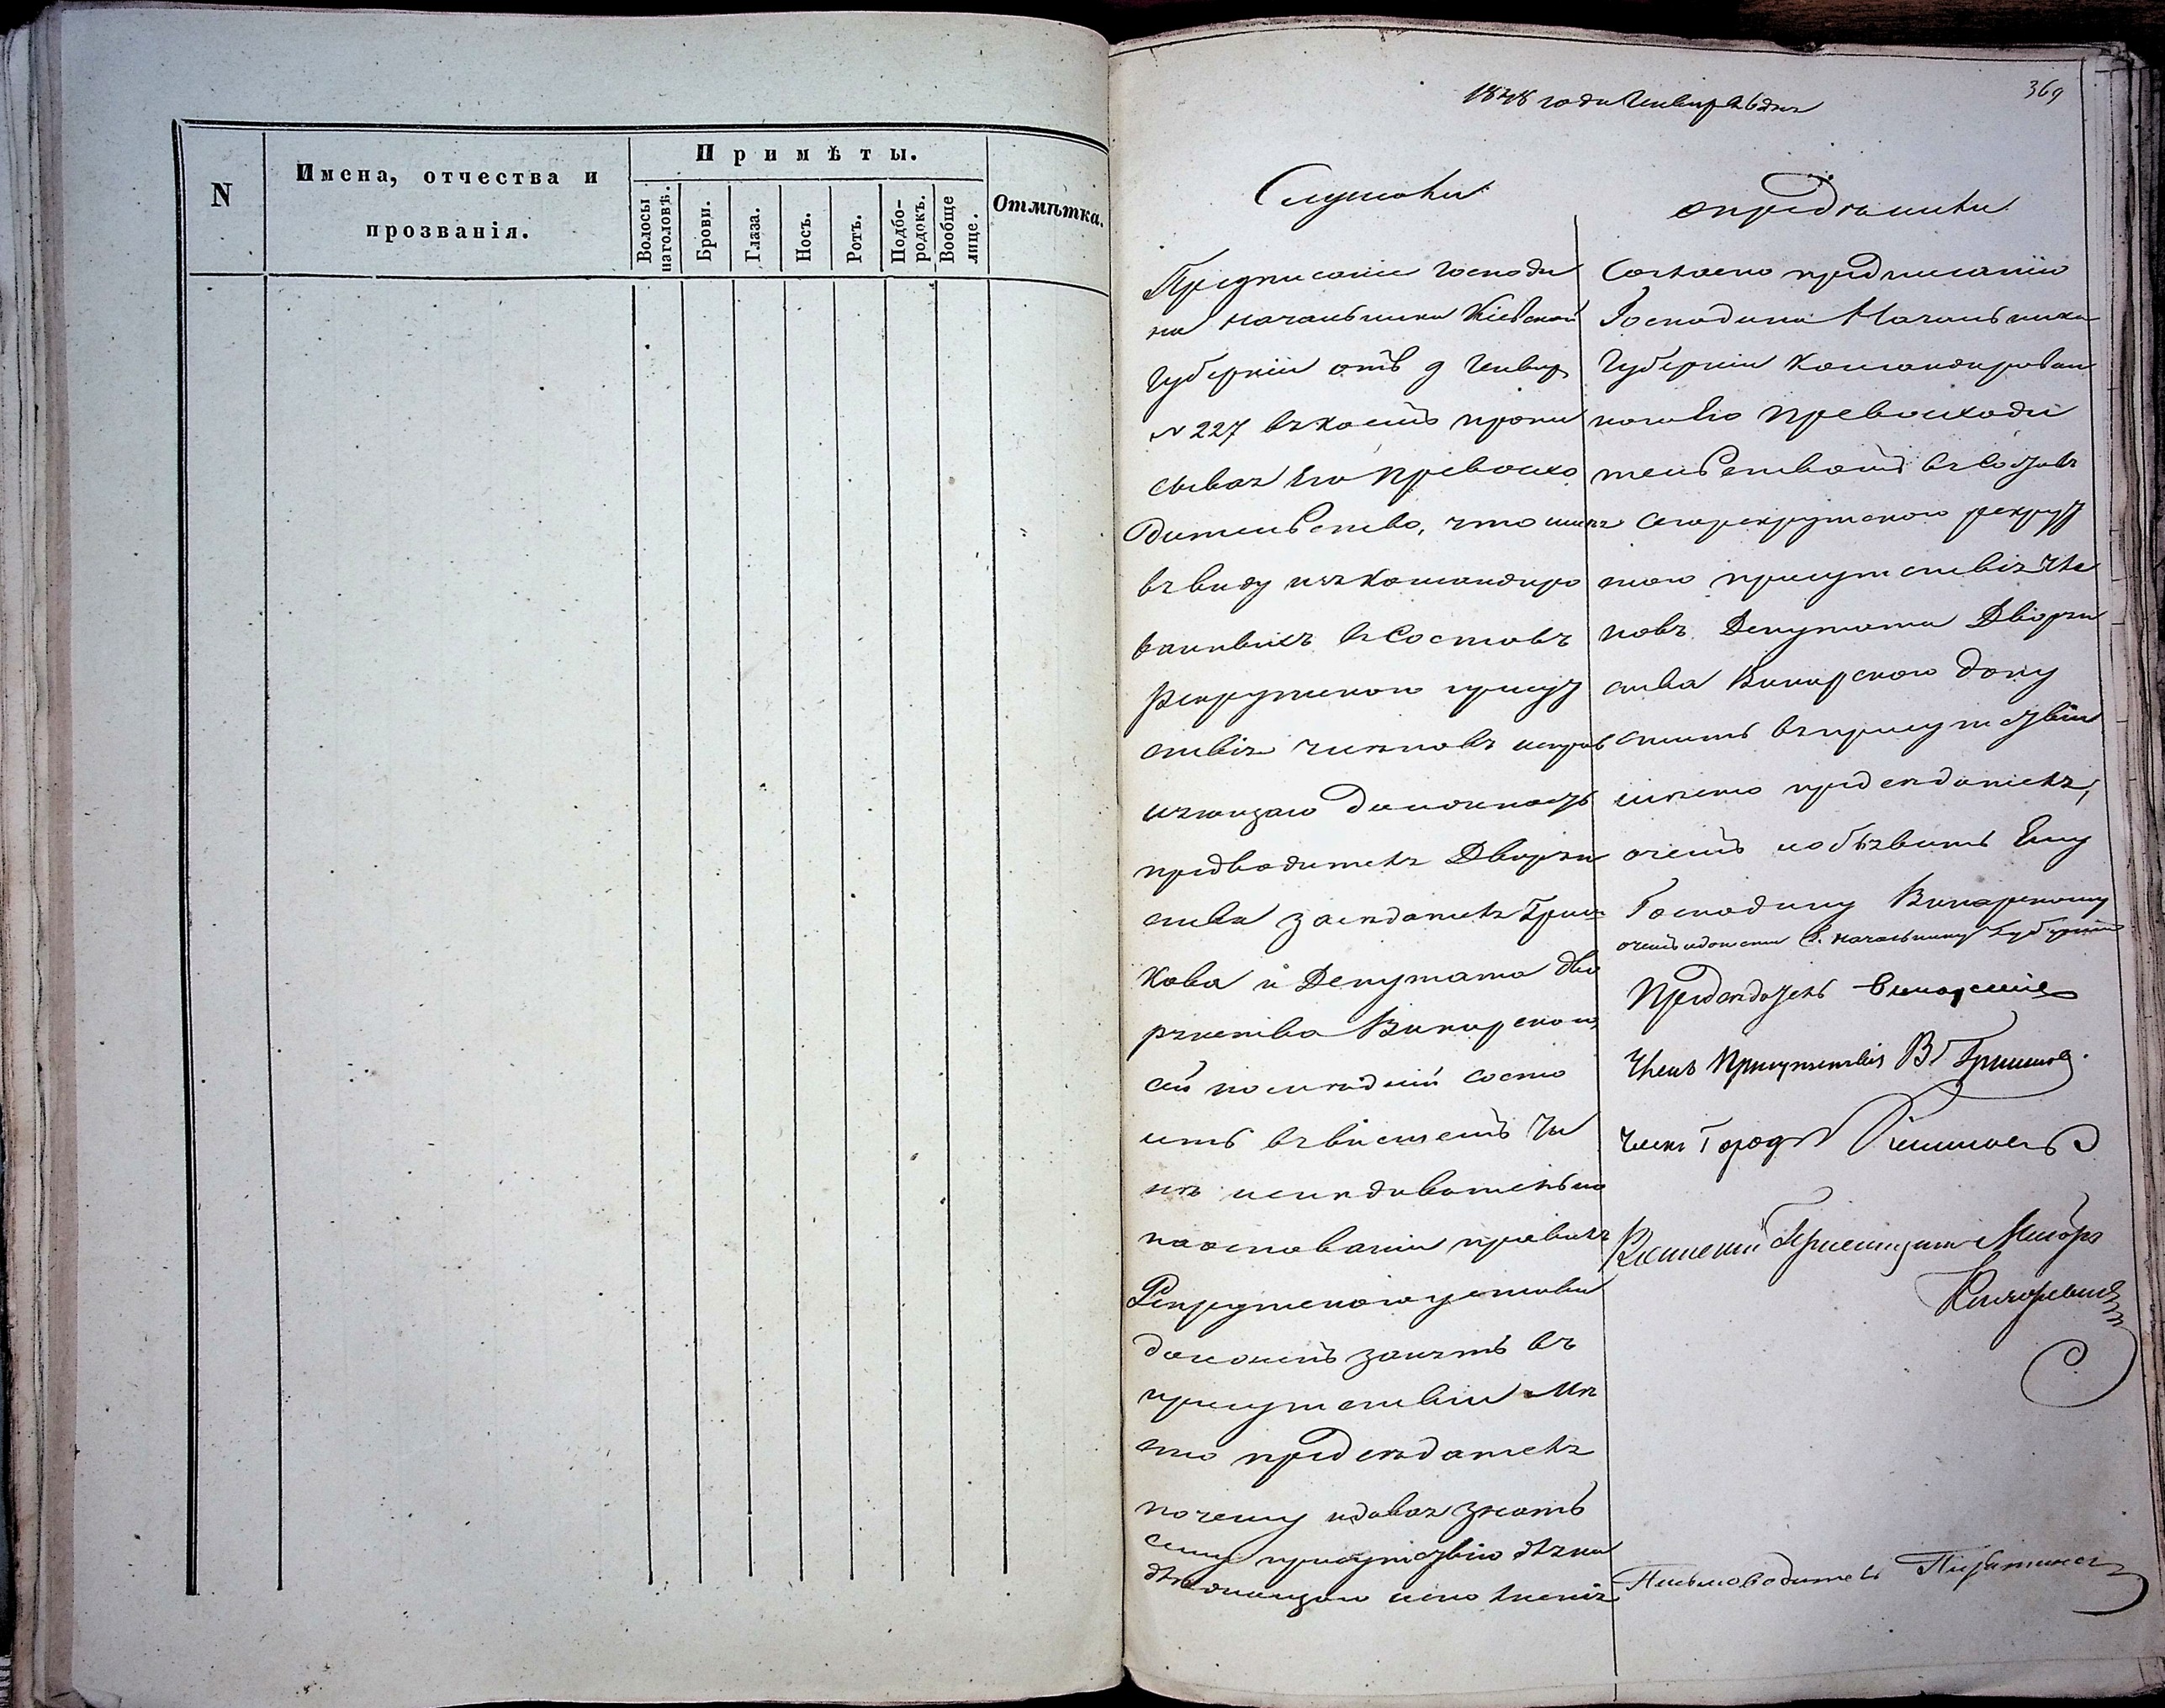 N
Имена, отчества и
прозванія.
Примѣты.
Волосы
наголовѣ.
Брови.
Глаза.
Носъ.
Ротъ.
Подбо-
родокъ.
Вообще
лице.
Отмѣтка.
369
1848 года Генвар 16 дня
Слушали
Предписаніе Господи
на Начальника Кіевской
Губерніи отъ 9 Генвар
N 227 въ коемъ пропи
сывая Его Превосхо
дительство, что имѣя
въ виду изъ командиро
ванныхъ въ Составъ
Рекрутскаго присут
ствія членовъ исправ
ляющаго должность
предводителя Дворян
ства засѣдателя
кова и Депутата дво
рянства Винарскаго,
сей послѣдній состо
итъ въ высшемъ чи
нѣ и слѣдовательно
на основаніи правилъ
Рекрутскаго устава
долженъ занять въ
присутствіи мѣ
сто предсѣдателя
почему и давая знать
сему присутствію для на
длежащаго исполненія
опредѣлили
Согласно предписанію
Господина Начальника
Губерніи командирован
наго Его Превосходи
тельствомъ въ Составъ
сего рекрутскаго рекрут
скаго присутствія Чле
новъ Депутата Дворян
ства Винарскаго допу
стить въ присутствіи
мѣсто предсѣдателя,
о чемъ и объявить Ему
Господину Винарскому
о чемъ и донести Г. Начальнику Губерніи
Предсѣдатель Винарскій
Членъ Присутствія В.
Членъ Город
Военный Пріемщикъ Маіоръ
Письмоводитель